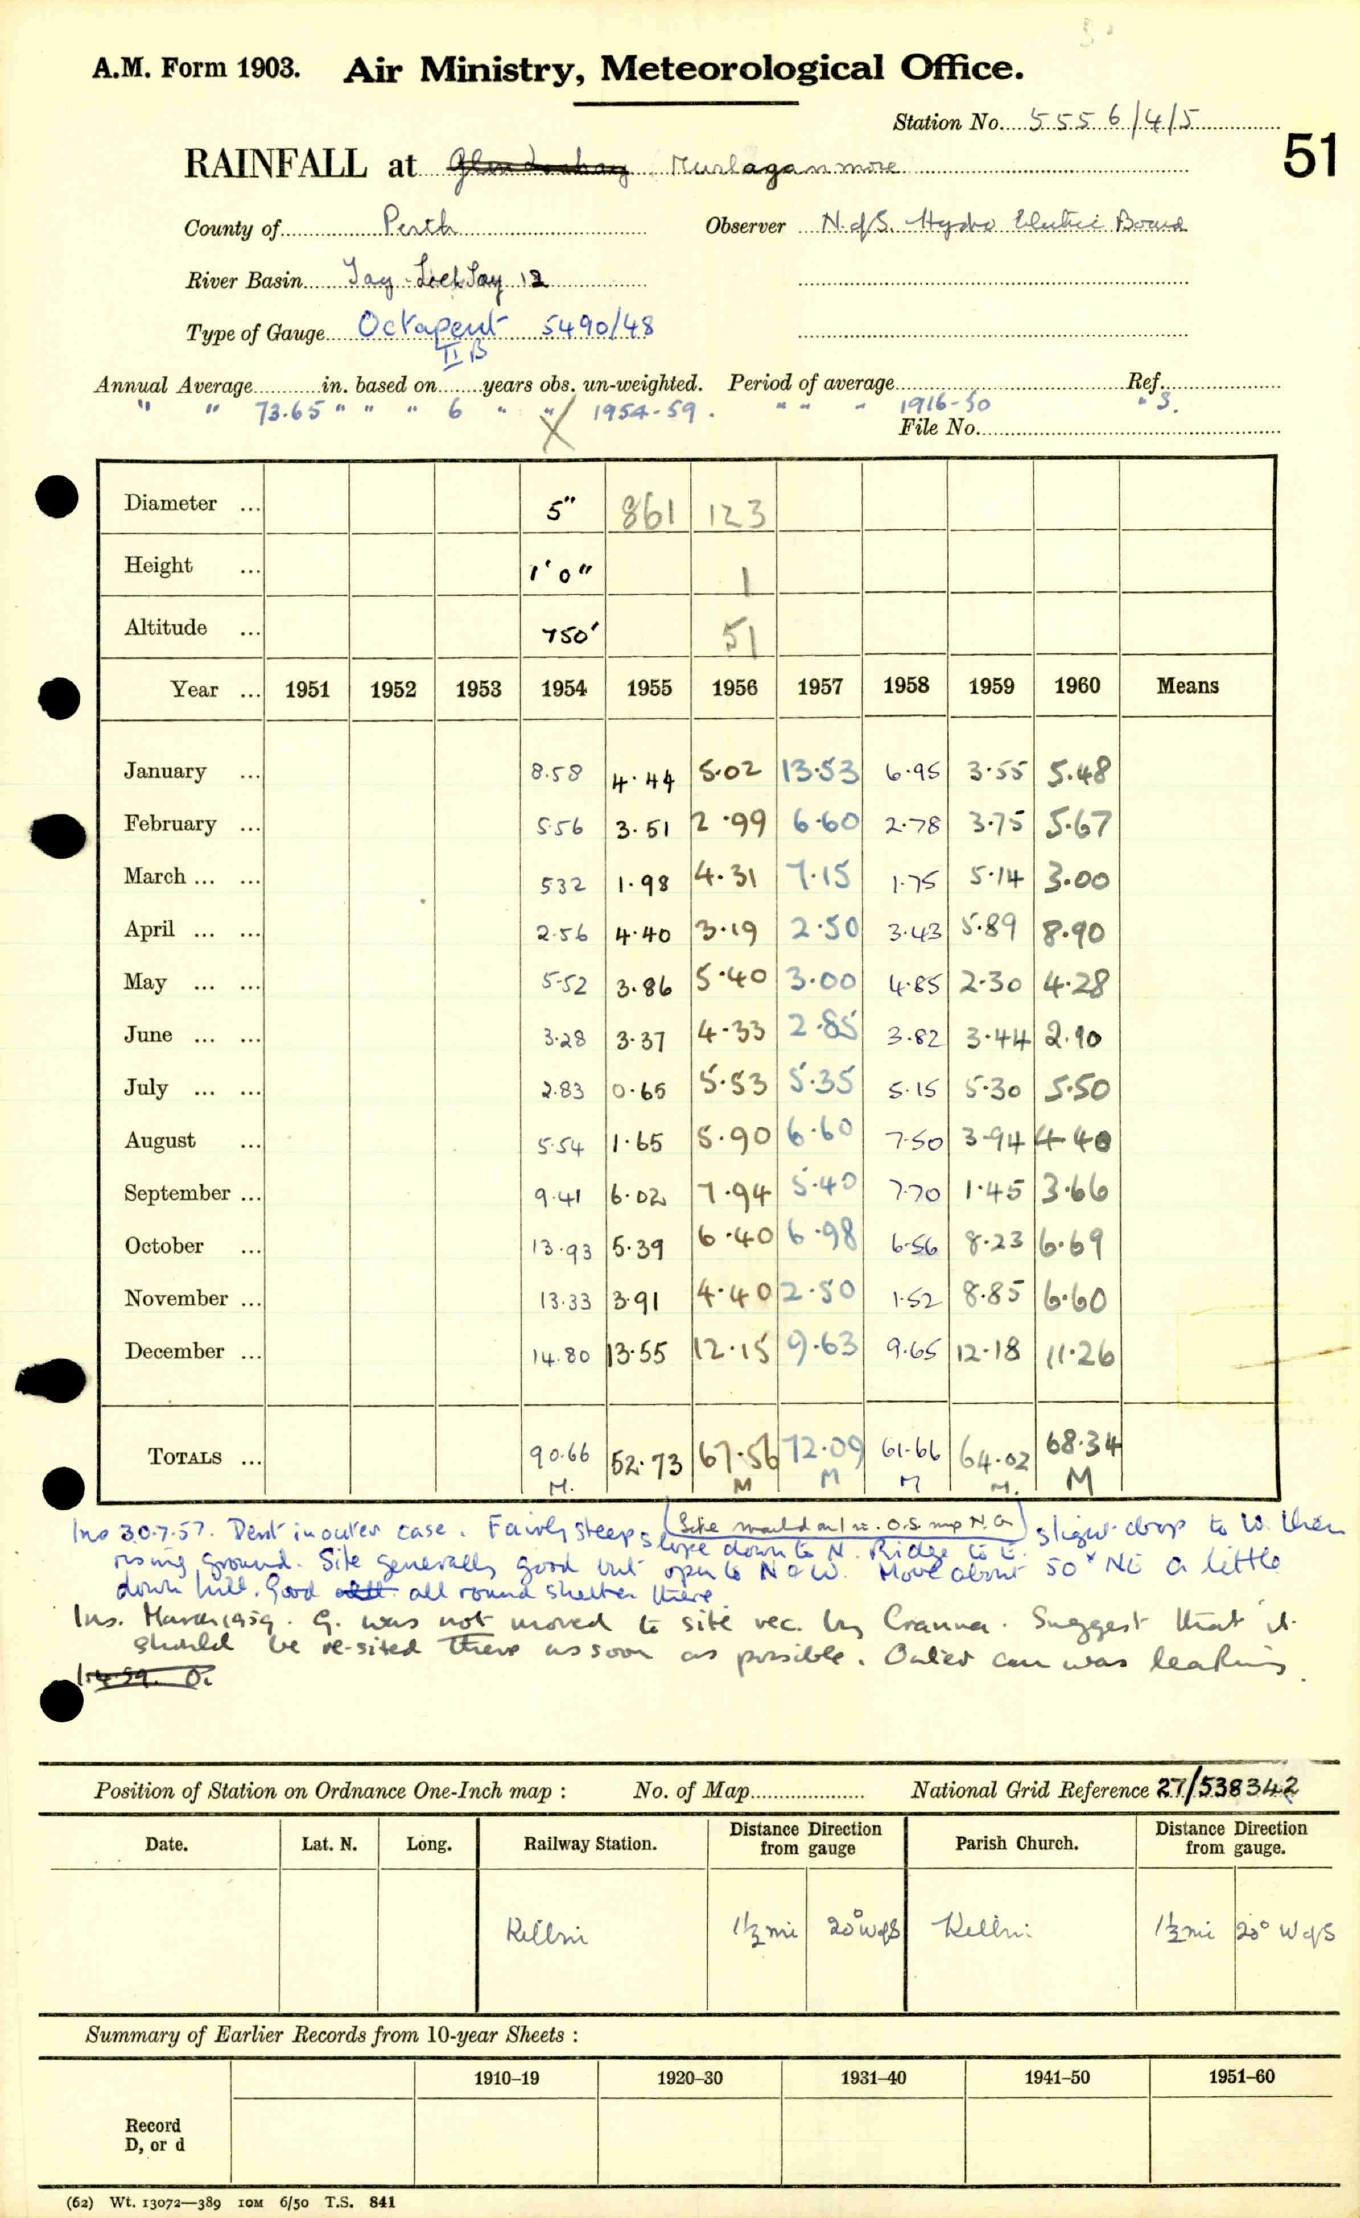 A.M. Form 1903. Air Ministry, Meteorological Office.
Station No. 5556/4/5
51
RAINFALL at Murlaganmore
County of Perth Observer N. of S. Hydro Electric Board
River Basin Tay - Loch Tay 12
Type of Gauge Octapent 5490/48
II B
Annual Average in. based on years obs. un-weighted. Period of average Ref.
" " 73.65 " " " 6 " " 1954-59. " " " 1916-50 " S.
File No.
Diameter ... 5" 861 123
Height ... 1'0" 1
Altitude ... 750' 51
Year ... 1951 1952 1953 1954 1955 1956 1957 1958 1959 1960 Means
January ... 8.58 4.44 5.02 13.53 6.95 3.55 5.48
February ... 5.56 3.51 2.99 6.60 2.78 3.75 5.67
March ... ... 5.32 1.98 4.31 7.15 1.75 5.14 3.00
April ... ... 2.56 4.40 3.19 2.50 3.43 5.89 8.90
May ... ... 5.52 3.86 5.40 3.00 4.85 2.30 4.28
June ... ... 3.28 3.37 4.33 2.85 3.82 3.44 2.90
July ... ... 2.83 0.65 5.53 5.35 5.15 5.30 5.50
August ... 5.54 1.65 5.90 6.60 7.50 3.94 4.40
September ... 9.41 6.02 7.94 5.40 7.70 1.45 3.66
October ... 13.93 5.39 6.40 6.98 6.56 8.23 6.69
November ... 13.33 3.91 4.40 2.50 1.52 8.85 6.60
December ... 14.80 13.55 12.15 9.63 9.65 12.18 11.26
TOTALS ... 90.66 52.73 67.56 72.09 61.66 64.02 68.34
M. M M M M. M
Ins 30.7.57. Dent in outer case. Fairly steep slope down to N. Ridge to E. slight drop to W. then
(Site marked on O.S. map N.G)
rising ground. Site generally good but open to N & W. Move about 50x NE a little
down hill. Good all round shelter there.
Ins. March 1959. G. was not moved to site rec. by Cranna. Suggest that it
should be re-sited there as soon as possible. Outer can was leaking.
Position of Station on Ordnance One-Inch map : No. of Map National Grid Reference 27/538342
Date. Lat. N. Long. Railway Station. Distance from Direction gauge Parish Church. Distance from Direction gauge.
Killin 1½ mi 20° W of S Killin 1½ mi 20° W of S
Summary of Earlier Records from 10-year Sheets :
1910–19 1920–30 1931–40 1941–50 1951–60
Record
D, or d
(62) Wt. 13072—389 10M 6/50 T.S. 841